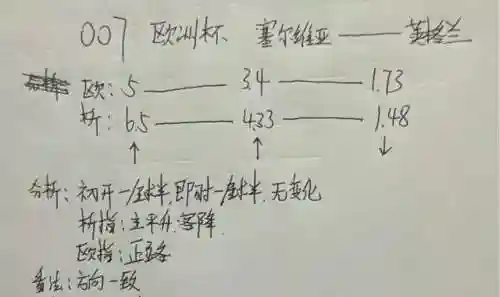 007 欧洲杯 塞尔维亚——英格兰
欧: 5——3.4——1.73
析: 6.5——4.33——1.48
↑ ↑ ↓
分析: 初开一/球半,即时一/球半,无变化
析指: 主平升,客降
欧指: 正路
看法: 方向一致